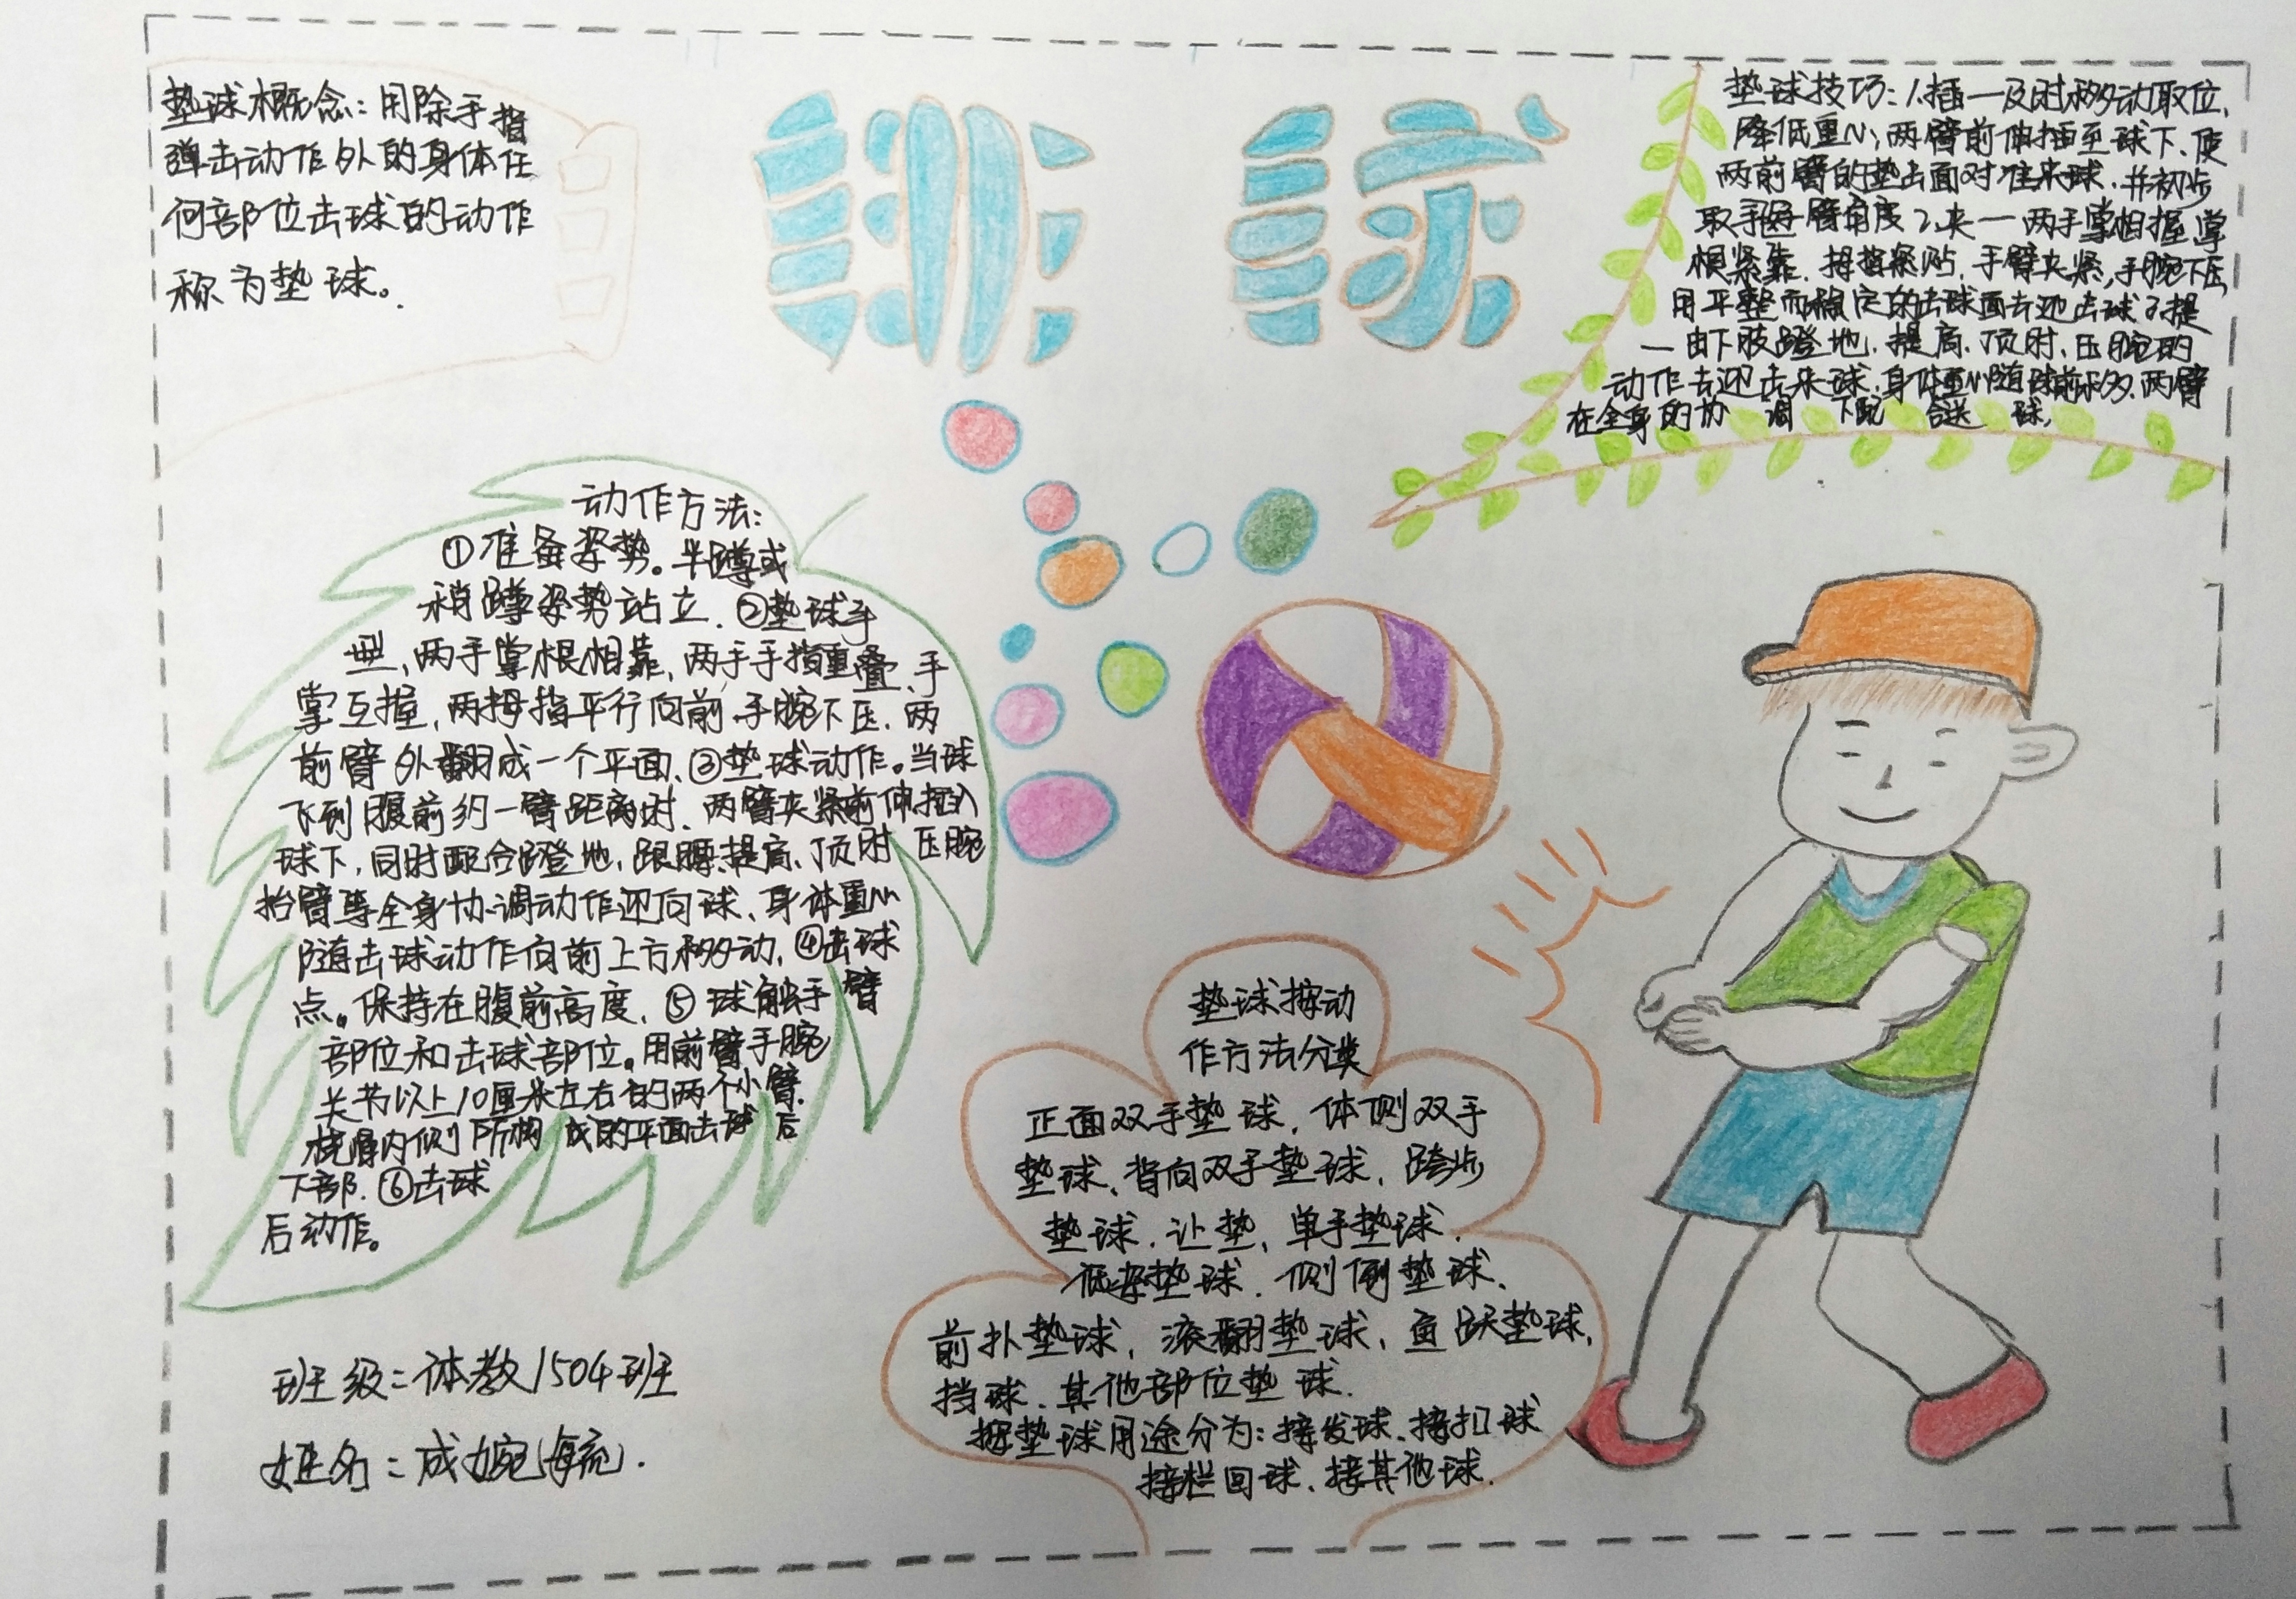 排球
垫球概念：用除手指
弹击动作外的身体任
何部位击球的动作
称为垫球。
垫球技巧：1.插一及时移动取位，
降低重心，两臂前伸插至球下、使
两前臂的垫击面对准来球.并初步
取手好臂角度2.夹一两手掌相握掌
根紧靠.拇指紧贴.手臂夹紧，手腕下压，
用平整而稳定的击球面去迎击球3.提
一由下肢蹬地.提高.顶肘.压腕的
动作去迎击来球.身体重心随球前移.两臂
在全身的协调下配合送球，
动作方法：
①准备姿势。半蹲或
稍蹲姿势站立.②垫球手
型、两手掌根相靠，两手手指重叠、手
掌互握，两拇指平行向前.手腕下压.两
前臂外翻成一个平面、③垫球动作。当球
飞到腹前约一臂距离时、两臂夹紧前伸插入
球下，同时配合蹬地，跟腰、提高、顶肘 压腕
抬臂等全身协调动作迎向球、身体重心
随击球动作向前上方移动，④击球
点。保持在腹前高度、⑤球触手臂
部位和击球部位。用前臂手腕
关节以上10厘米左右的两个小臂
桡骨内侧所构成的平面击球后
下部.⑥击球
后动作。
垫球按动
作方法分类
正面双手垫球，体侧双手
垫球、背向双手垫球，跨步
垫球.让垫、单手垫球.
低姿垫球.侧倒垫球、
前扑垫球，滚翻垫球、鱼跃垫球，
挡球.其他部位垫球.
按垫球用途分为：接发球、接扣球
接拦回球、接其他球.
班级：体教1504班
姓名：成婉毓.